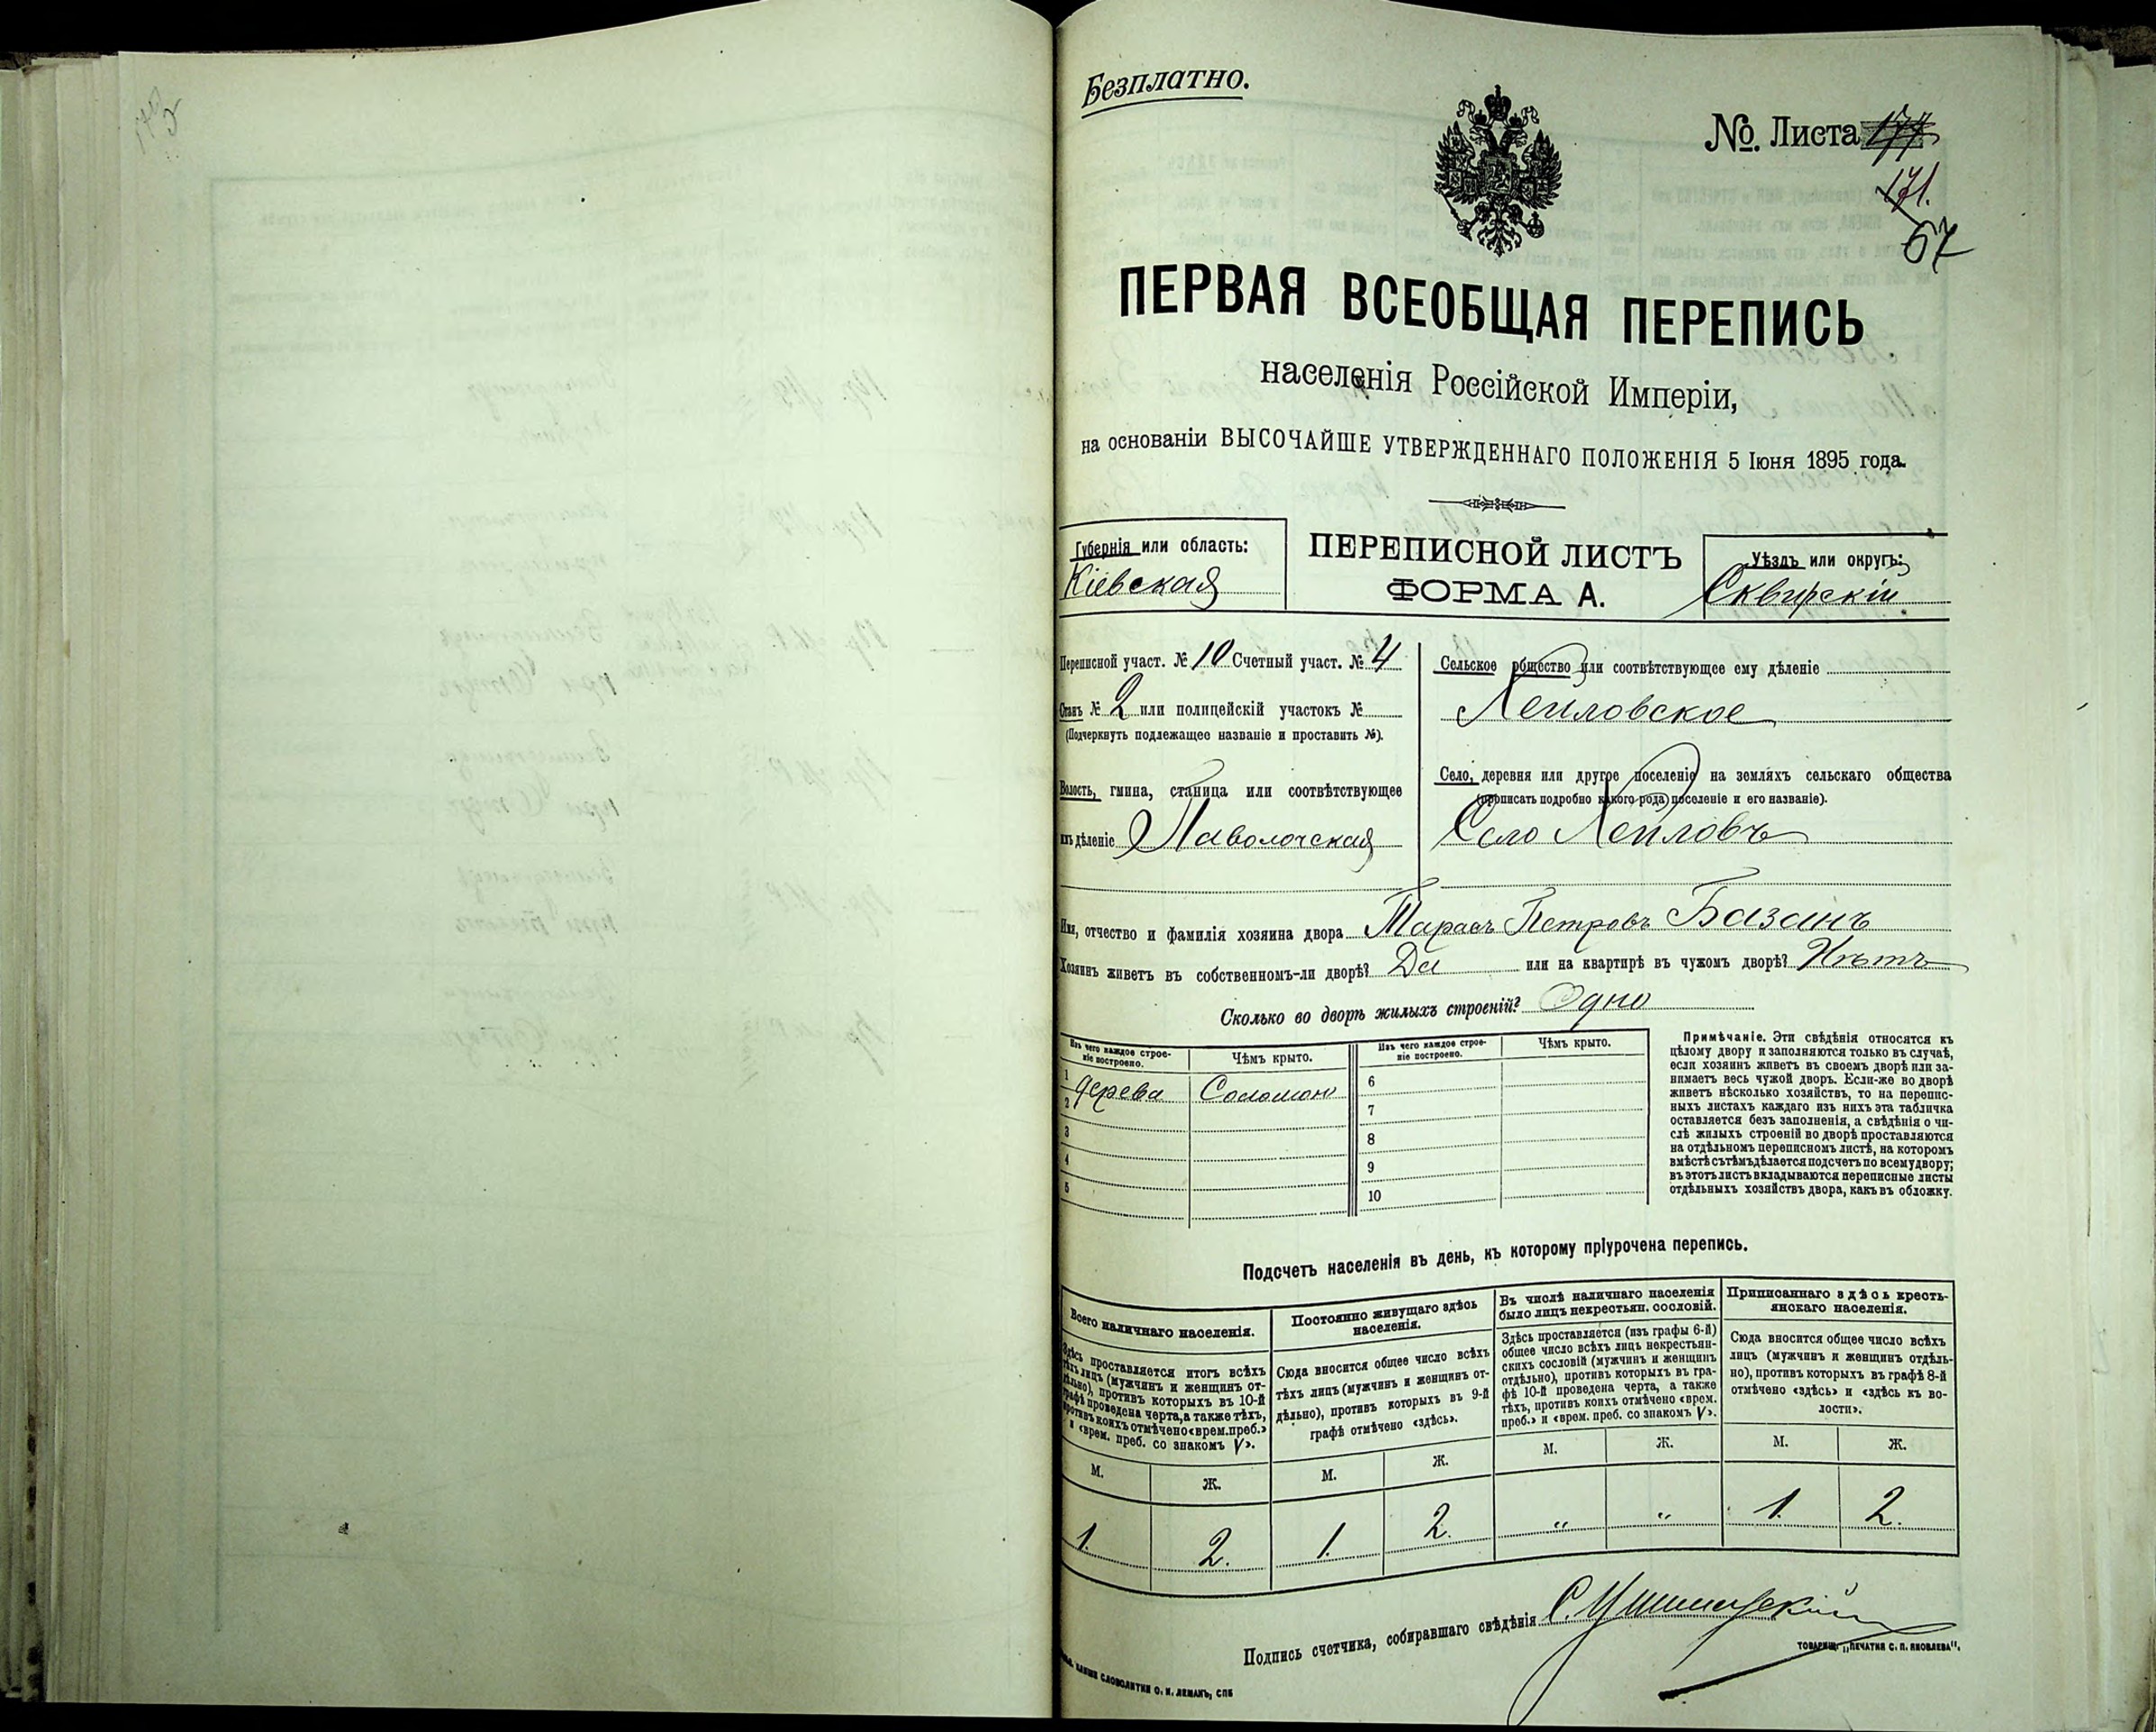 Безплатно.
№. Листа 177
171.
67
ПЕРВАЯ ВСЕОБЩАЯ ПЕРЕПИСЬ
населенія Россійской Имперіи,
на основаніи ВЫСОЧАЙШЕ УТВЕРЖДЕННАГО ПОЛОЖЕНІЯ 5 Іюня 1895 года.
Губернія или область:
Кіевская
ПЕРЕПИСНОЙ ЛИСТЪ
ФОРМА А.
Уѣздъ или округъ:
Сквирскій
Переписной участ. № 10 Счетный участ. № 4
Станъ № 2 или полицейскій участокъ №
(Подчеркнуть подлежащее названіе и проставить №).
Волость, гмина, станица или соотвѣтствующее
имъ дѣленіе Паволочская
Сельское общество или соотвѣтствующее ему дѣленіе
Село, деревня или другое поселеніе на земляхъ сельскаго общества
(прописать подробно какого рода поселеніе и его названіе).
Село
Имя, отчество и фамилія хозяина двора Тарасъ Петровъ Базанъ
Хозяинъ живетъ въ собственномъ-ли дворѣ? Да или на квартирѣ въ чужомъ дворѣ? Нѣтъ
Сколько во дворѣ жилыхъ строеній? Одно
Изъ чего каждое строе-
ніе построено.
Чѣмъ крыто.
Изъ чего каждое строе-
ніе построено.
Чѣмъ крыто.
1 дерева Соломою
2
3
4
5
6
7
8
9
10
Примѣчаніе. Эти свѣдѣнія относятся къ
цѣлому двору и заполняются только въ случаѣ,
если хозяинъ живетъ въ своемъ дворѣ или за-
нимаетъ весь чужой дворъ. Если-же во дворѣ
живетъ нѣсколько хозяйствъ, то на перепис-
ныхъ листахъ каждаго изъ нихъ эта табличка
оставляется безъ заполненія, а свѣдѣнія о чи-
слѣ жилыхъ строеній во дворѣ проставляются
на отдѣльномъ переписномъ листѣ, на которомъ
вмѣстѣ съ тѣмъ дѣлается подсчетъ по всему двору;
въ этотъ листъ вкладываются переписные листы
отдѣльныхъ хозяйствъ двора, какъ въ обложку.
Подсчетъ населенія въ день, къ которому пріурочена перепись.
Всего наличнаго населенія.
Здѣсь проставляется итогъ всѣхъ
тѣхъ лицъ (мужчинъ и женщинъ от-
дѣльно), противъ которыхъ въ 10-й
графѣ проведена черта, а также тѣхъ,
противъ коихъ отмѣчено «врем. преб.»
и «врем. преб. со знакомъ V».
М.
Ж.
1.
2.
Постоянно живущаго здѣсь
населенія.
Сюда вносится общее число всѣхъ
тѣхъ лицъ (мужчинъ и женщинъ от-
дѣльно), противъ которыхъ въ 9-й
графѣ отмѣчено «здѣсь».
М.
Ж.
1.
2.
Въ числѣ наличнаго населенія
было лицъ некрестьян. сословій.
Здѣсь проставляется (изъ графы 6-й)
общее число всѣхъ лицъ некрестьян-
скихъ сословій (мужчинъ и женщинъ
отдѣльно), противъ которыхъ въ гра-
фѣ 10-й проведена черта, а также
тѣхъ, противъ коихъ отмѣчено «врем.
преб.» и «врем. преб. со знакомъ V».
М.
Ж.
"
"
Приписаннаго здѣсь кресть-
янскаго населенія.
Сюда вносится общее число всѣхъ
лицъ (мужчинъ и женщинъ отдѣль-
но), противъ которыхъ въ графѣ 8-й
отмѣчено «здѣсь» и «здѣсь къ во-
лости».
М.
Ж.
1.
2.
Подпись счетчика, собиравшаго свѣдѣнія
ТОВАРИЩ. „ПЕЧАТНЯ С. П. ЯКОВЛЕВА“.
СЛОВОЛИТНИ О. И. ЛЕМАНЪ, СПБ